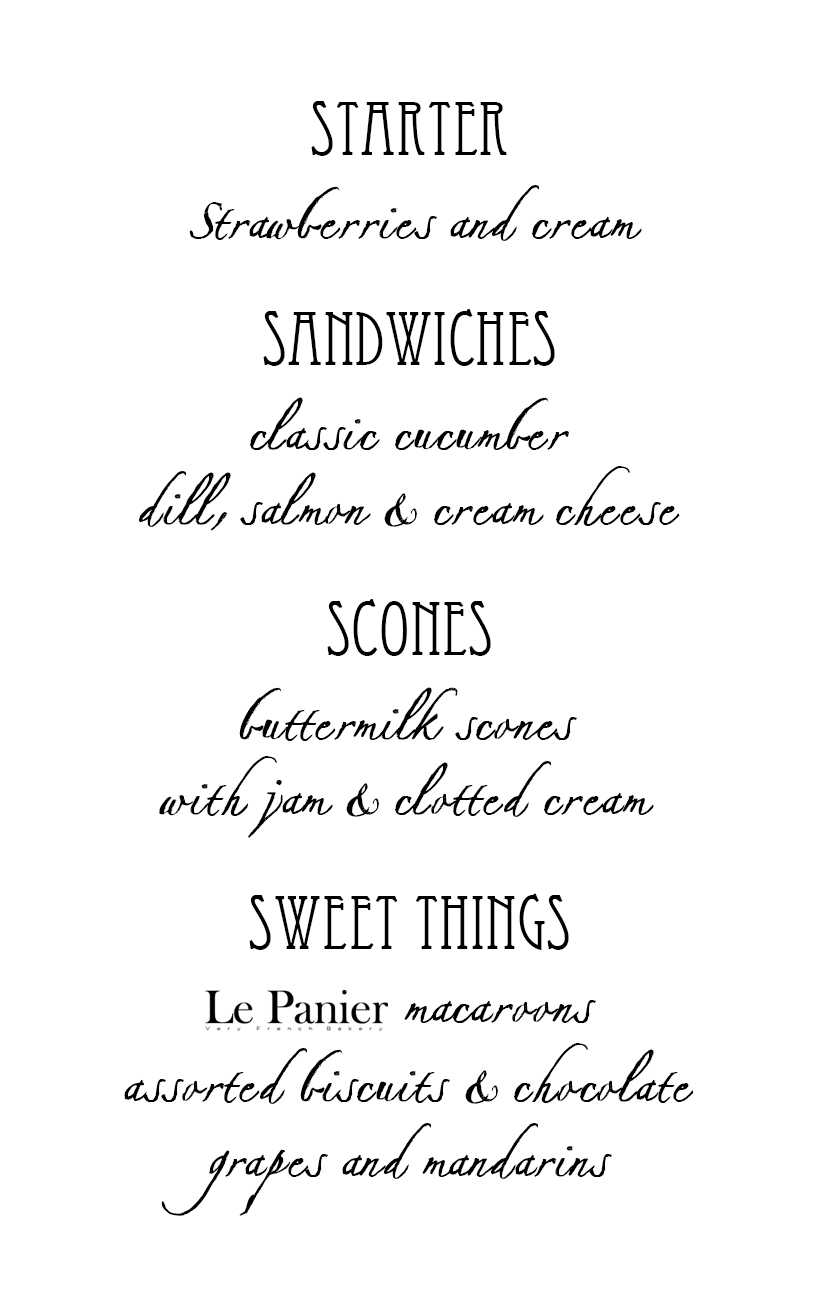 STARTER
Strawberries and cream
SANDWICHES
classic cucumber
dill, salmon & cream cheese
SCONES
buttermilk scones
with jam & clotted cream
SWEET THINGS
Le Panier macaroons
Very French Bakery
assorted biscuits & chocolate
grapes and mandarins